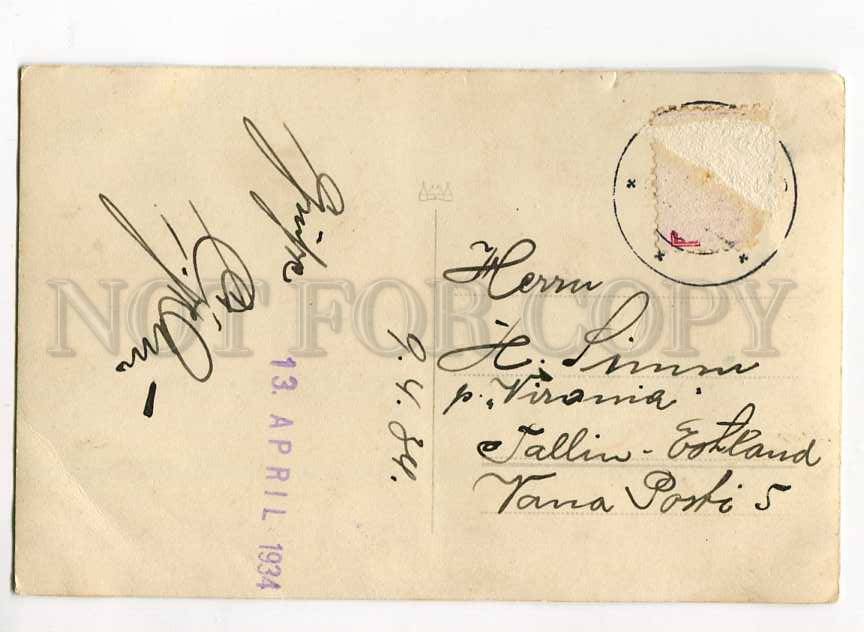 Grüße
9.4.34.
13. APRIL 1934
Herrn
H. Simm
p. „Vironia"
Tallin - Estland
Vana Posti 5
NOT FOR COPY